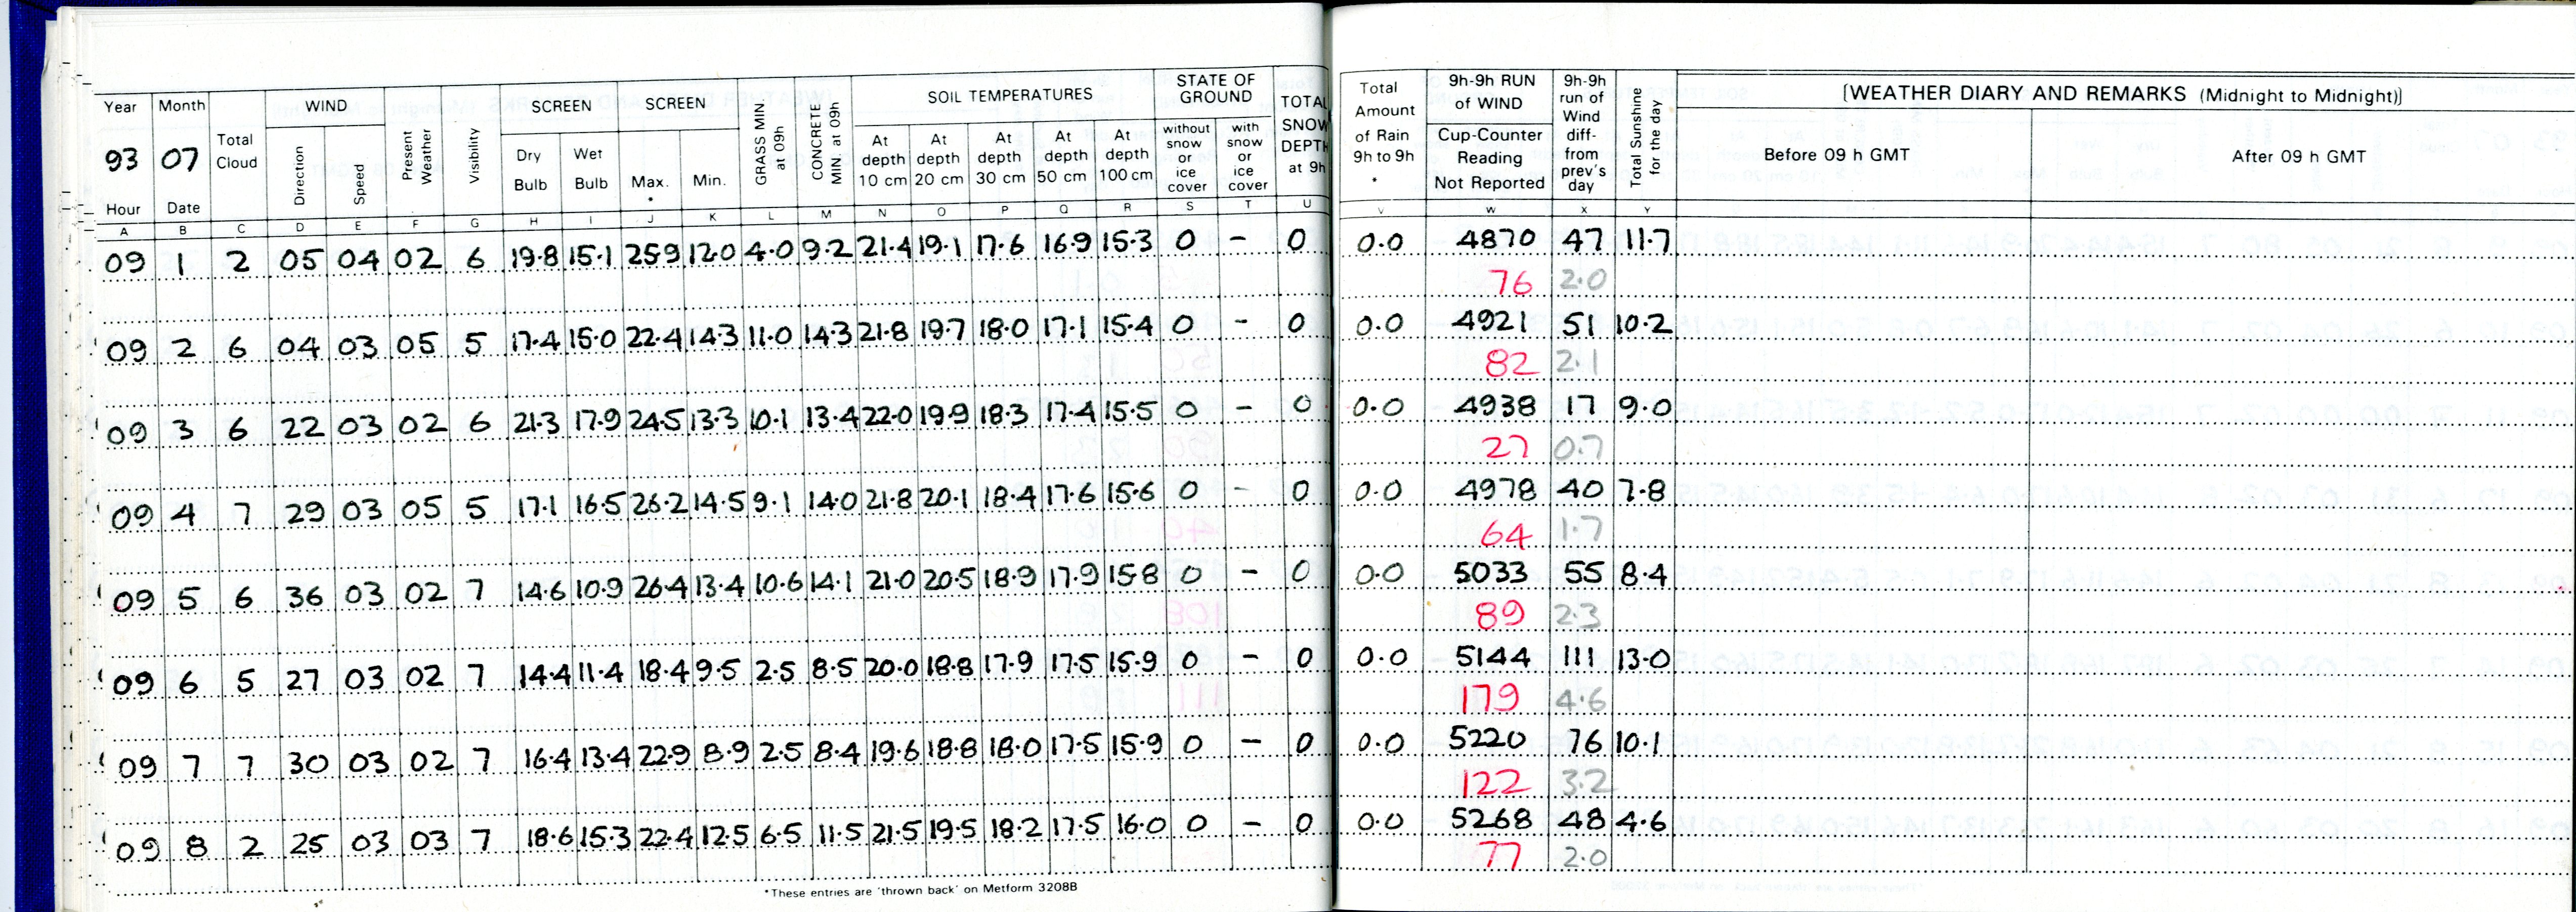 Year Month WIND SCREEN SCREEN GRASS MIN. at 09h CONCRETE MIN. at 09h SOIL TEMPERATURES STATE OF GROUND TOTAL SNOW DEPTH at 9h Total Amount of Rain 9h to 9h * 9h-9h RUN of WIND 9h-9h run of Wind diff- from prev's day Total Sunshine for the day [WEATHER DIARY AND REMARKS (Midnight to Midnight)]
93 07 Total Cloud Direction Speed Present Weather Visibility Dry Bulb Wet Bulb Max. * Min. At depth 10 cm At depth 20 cm At depth 30 cm At depth 50 cm At depth 100 cm without snow or ice cover with snow or ice cover Cup-Counter Reading Not Reported Before 09 h GMT After 09 h GMT
Hour Date
A B C D E F G H I J K L M N O P Q R S T U V W X Y
09 1 2 05 04 02 6 19.8 15.1 25.9 12.0 4.0 9.2 21.4 19.1 17.6 16.9 15.3 0 – 0 0.0 4870 47 11.7
76 2.0
09 2 6 04 03 05 5 17.4 15.0 22.4 14.3 11.0 14.3 21.8 19.7 18.0 17.1 15.4 0 – 0 0.0 4921 51 10.2
82 2.1
09 3 6 22 03 02 6 21.3 17.9 24.5 13.3 10.1 13.4 22.0 19.9 18.3 17.4 15.5 0 – 0 0.0 4938 17 9.0
27 0.7
09 4 7 29 03 05 5 17.1 16.5 26.2 14.5 9.1 14.0 21.8 20.1 18.4 17.6 15.6 0 – 0 0.0 4978 40 7.8
64 1.7
09 5 6 36 03 02 7 14.6 10.9 26.4 13.4 10.6 14.1 21.0 20.5 18.9 17.9 15.8 0 – 0 0.0 5033 55 8.4
89 2.3
09 6 5 27 03 02 7 14.4 11.4 18.4 9.5 2.5 8.5 20.0 18.8 17.9 17.5 15.9 0 – 0 0.0 5144 111 13.0
179 4.6
09 7 7 30 03 02 7 16.4 13.4 22.9 8.9 2.5 8.4 19.6 18.8 18.0 17.5 15.9 0 – 0 0.0 5220 76 10.1
122 3.2
09 8 2 25 03 03 7 18.6 15.3 22.4 12.5 6.5 11.5 21.5 19.5 18.2 17.5 16.0 0 – 0 0.0 5268 48 4.6
77 2.0
*These entries are 'thrown back' on Metform 3208B